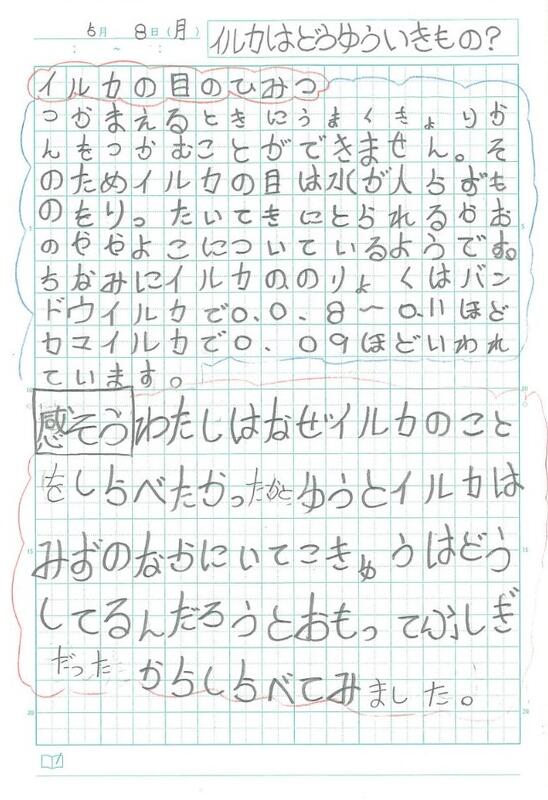 5月 8日(月)
イルカはどうゆういきもの?
イルカの目のひみつ
つかまえるときにうまくきょりか
んをつかむことができません。そ
のためイルカの目は水が人らおも
のをりったいてきにとられるかお
のややよこについているようです。
ちなみにイルカののりょくはバン
ドウイルカで0.0.8〜0.11ほど
カマイルカで0.09ほどいわれ
ています。
感そう わたしはなぜイルカのこと
をしらべたかったかとゆうとイルカは
みずのなかにいてこきゅうはどう
してるんだろうとおもってふしぎ
だったからしらべてみました。